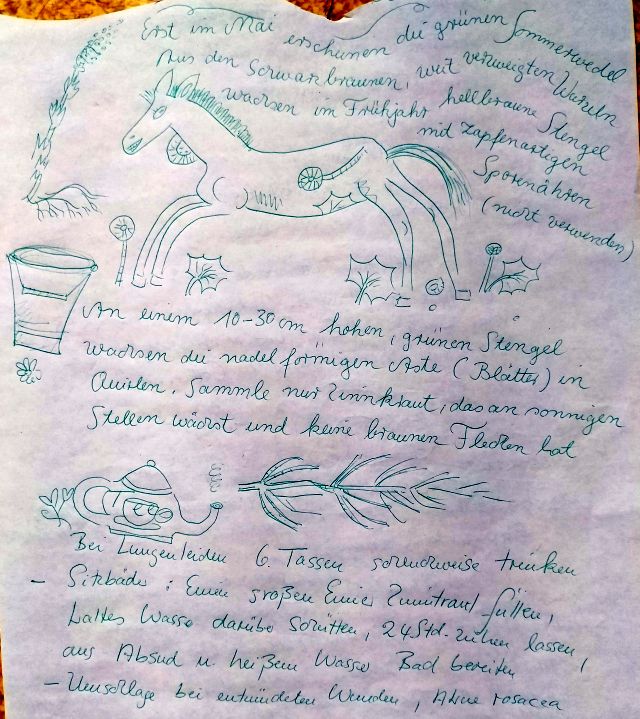 Erst im Mai erscheinen die grünen Sommerwedel
Aus den Schwarzbraunen, weit verzweigten Wurzeln
wachsen im Frühjahr hellbraune Stengel
mit zapfenartigen
Sporenähren
(nicht verwenden)
An einem 10-30 cm hohen, grünen Stengel
wachsen die nadelförmigen Äste (Blätter) in
Quirlen. Sammle nur Zinnkraut, das an sonnigen
Stellen wächst und keine braunen Flecken hat
Bei Lungenleiden 6 Tassen schluckweise trinken
- Sitzbäder: Einen großen Eimer Zinnkraut füllen,
kaltes Wasser darüber schütten, 24 Std. ziehen lassen,
aus Absud u. heißem Wasser Bad bereiten
- Umschläge bei entzündeten Wunden, Akne rosacea